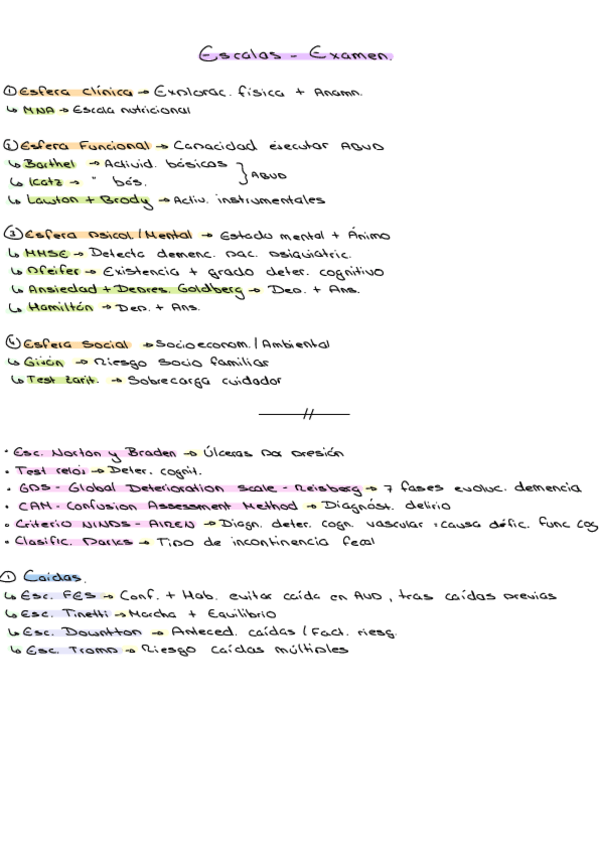 Escalas - Examen.
① Esfera clínica → Explorac. física + Anamn.
↳ MNA → Escala nutricional
② Esfera Funcional → Capacidad ejecutar ABVD
↳ Barthel → Activid. básicas } ABVD
↳ Katz → " bás.
↳ Lawton + Brody → Activ. instrumentales
③ Esfera Psicol/Mental → Estado mental + Ánimo
↳ MMSE → Detecta demenc. pac. psiquiatric.
↳ Pfeifer → Existencia + grado deter. cognitivo
↳ Ansiedad + Depres. Goldberg → Dep. + Ans.
↳ Hamiltón → Dep. + Ans.
④ Esfera Social → Socioeconom. / Ambiental
↳ Gijón → Riesgo socio familiar
↳ Test Zarit. → Sobrecarga cuidador
• Esc. Norton y Braden → Úlceras por presión
• Test reloj → Deter. cognit.
• GDS - Global Deterioration Scale - Reisberg → 7 fases evoluc. demencia
• CAM - Confusion Assessment Method → Diagnóst. delirio
• Criterio NINDS - AIREN → Diagn. deter. cogn. vascular : causa défic. func cog
• Clasific. Parks → Tipo de incontinencia fecal
① Caídas.
↳ Esc. FES → Conf. + Hab. evitar caída en AVD, tras caídas previas
↳ Esc. Tinetti → Marcha + Equilibrio
↳ Esc. Downtton → Anteced. caídas / Fact. riesg.
↳ Esc. Tromp → Riesgo caídas múltiples